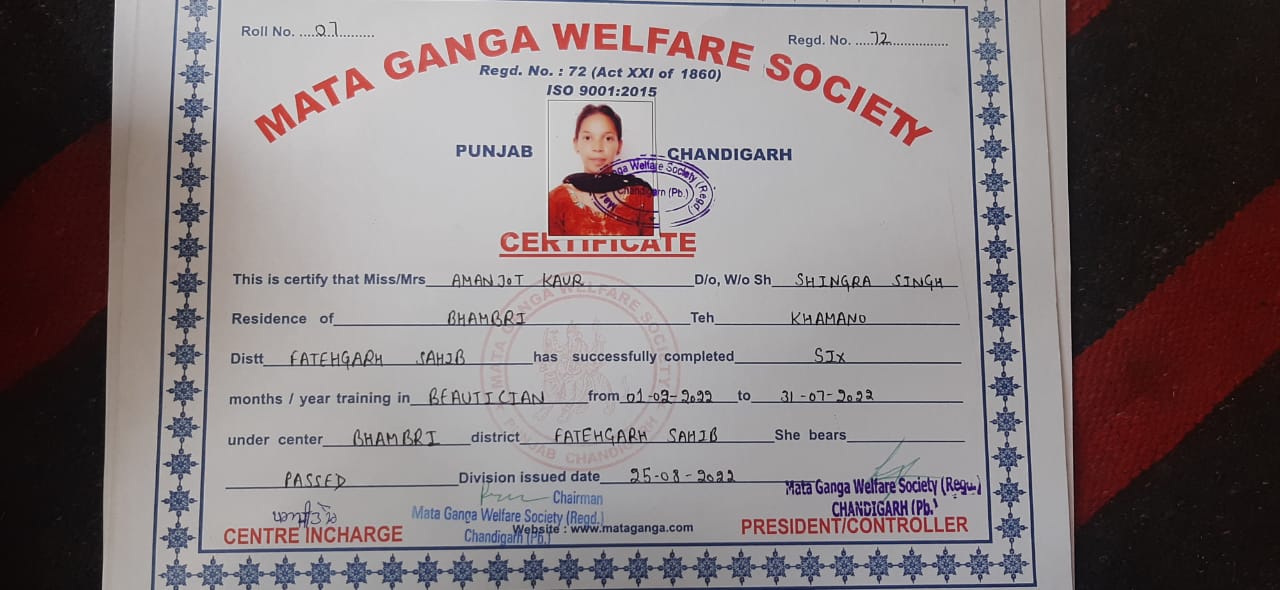 Roll No. ....07......... Regd. No. ....72................
MATA GANGA WELFARE SOCIETY
Regd. No. : 72 (Act XXI of 1860)
ISO 9001:2015
PUNJAB CHANDIGARH
Ganga Welfare Society (Regd.)
Chandigarh (Pb.)
CERTIFICATE
This is certify that Miss/Mrs AMANJOT KAUR D/o, W/o Sh SHINGRA SINGH
Residence of BHAMBRI Teh KHAMANO
Distt FATEHGARH SAHIB has successfully completed SIX
months / year training in BEAUTICIAN from 01-02-2022 to 31-07-2022
under center BHAMBRI district FATEHGARH SAHIB She bears
PASSED Division issued date 25-08-2022
MATA GANGA WELFARE SOCIETY
PUNJAB CHANDIGARH
Chairman
Mata Ganga Welfare Society (Regd.)
Chandigarh (Pb.)
Mata Ganga Welfare Society (Regd.)
CHANDIGARH (Pb.)
CENTRE INCHARGE Website : www.mataganga.com PRESIDENT/CONTROLLER